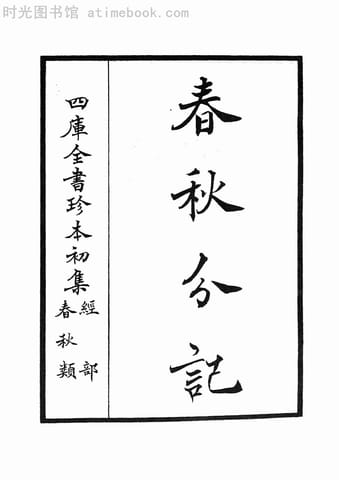 时光图书馆 atimebook.com
春秋分記
四庫全書珍本初集
經部
春秋類